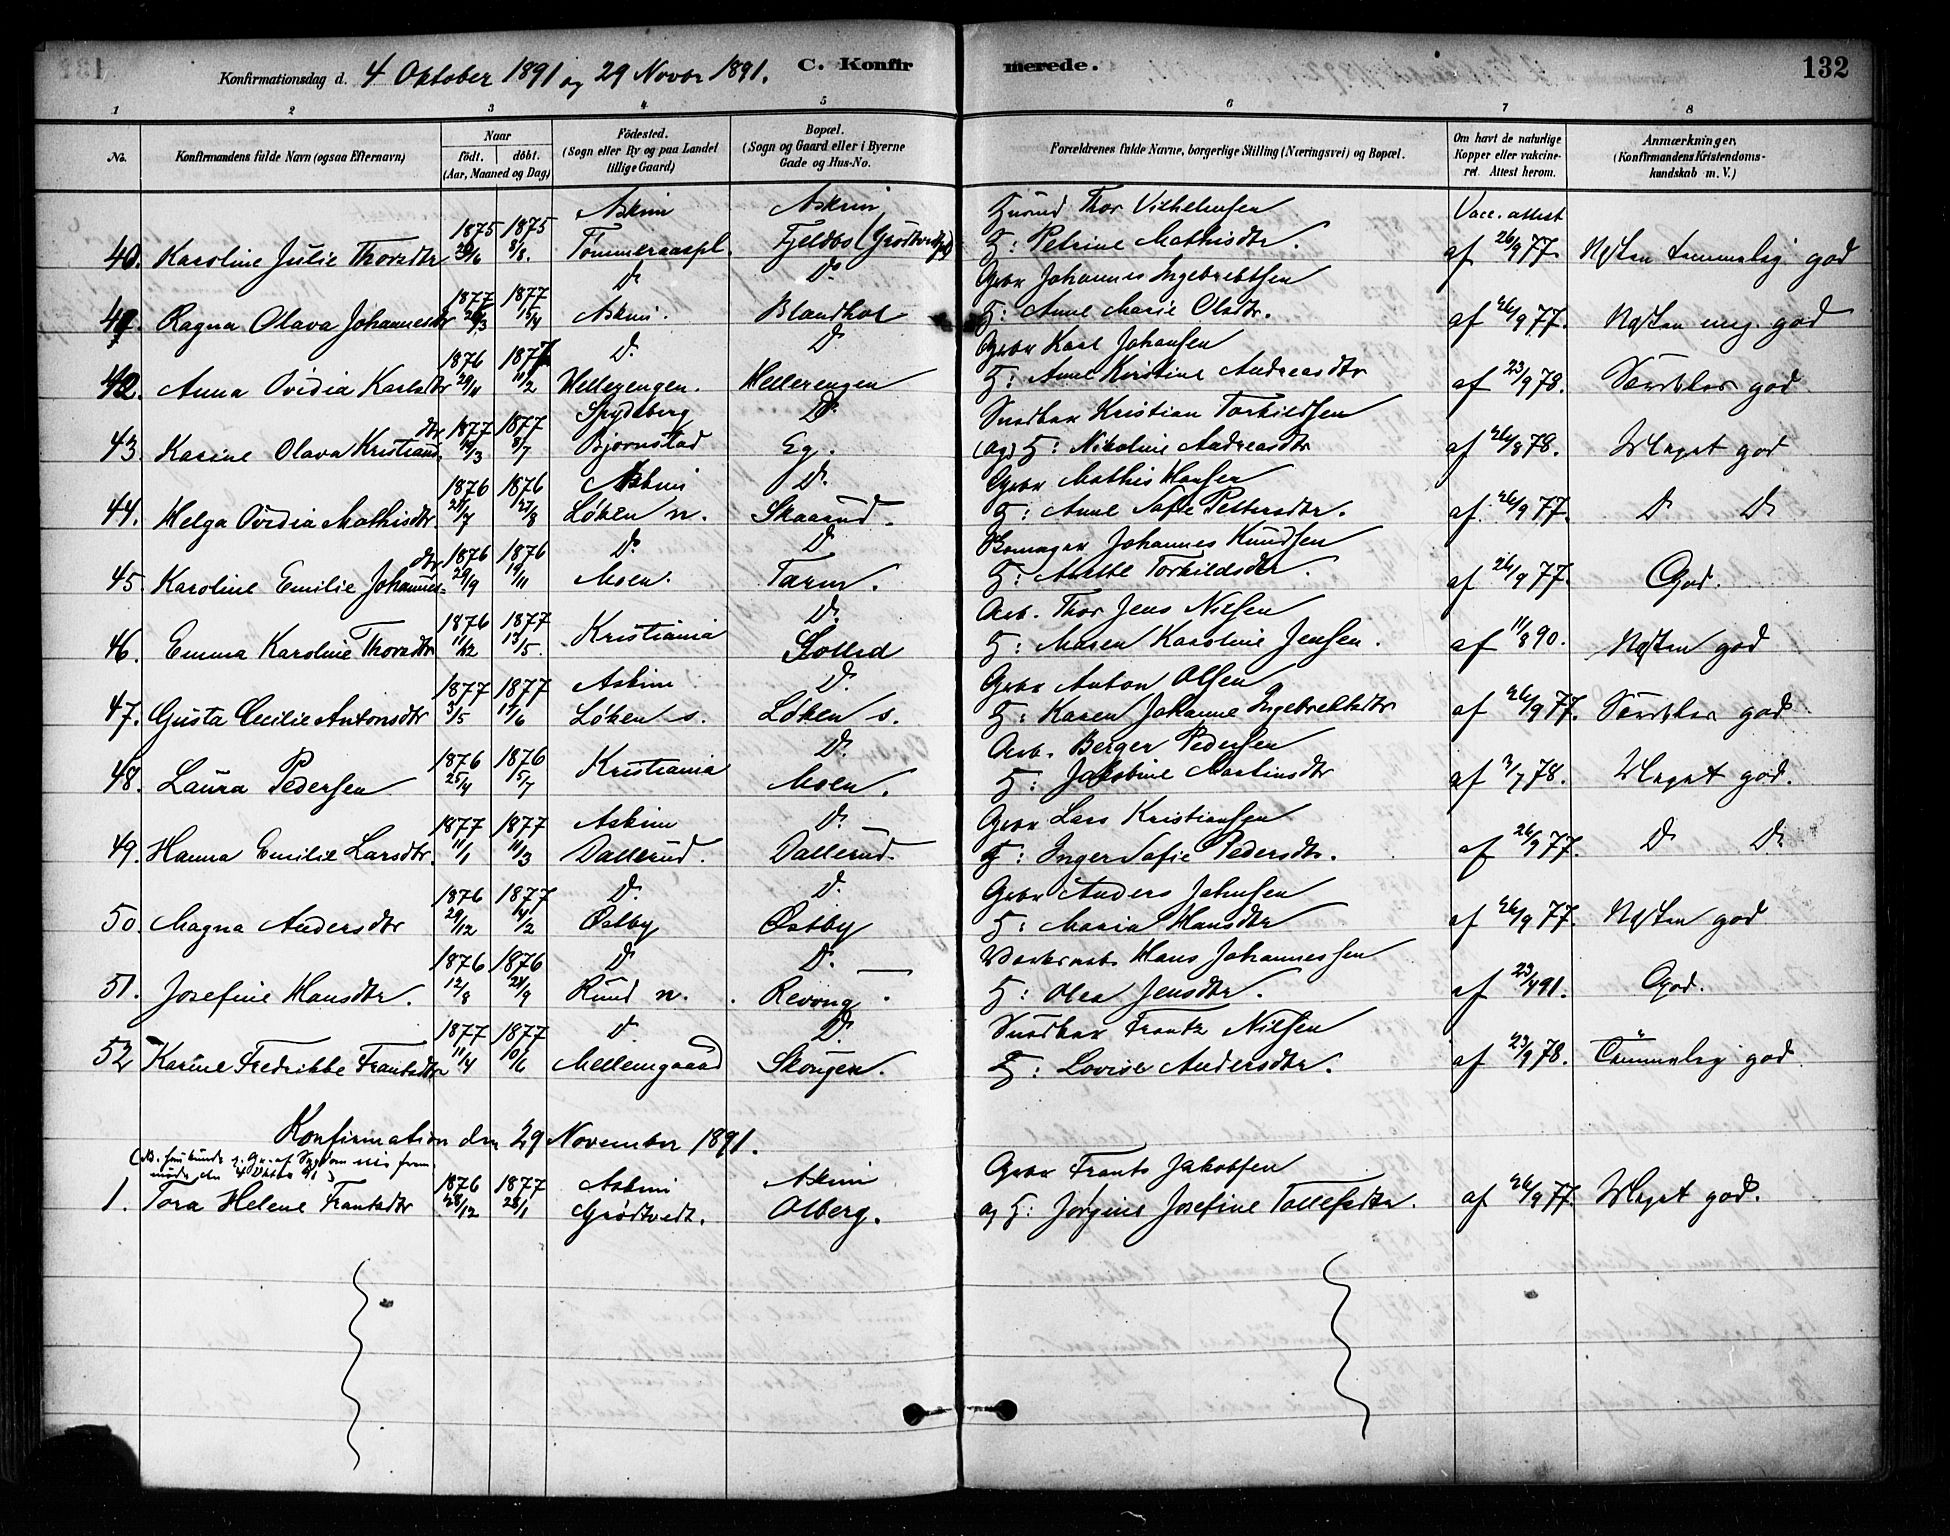 Konfirmationsdag d. 4 Oktober 1891 og 29 Novbr 1891. C. Konfirmerede. 132
1 2 3 4 5 6 7 8
No. Konfirmandens fulde Navn (ogsaa Efternavn) Naar födt. döbt. (Aar, Maaned og Dag) Födested. (Sogn eller By og paa Landet tillige Gaard) Bopæl. (Sogn og Gaard eller i Byerne Gade og Hus-No. Forældrenes fulde Navne, borgerlige Stilling (Næringsvei) og Bopæl. Om havt de naturlige Kopper eller vakcineret. Attest herom. Anmærkninger, (Konfirmandens Kristendomskundskab m. V.)
1875 1875 Askim Askim Thor Vilhelmsen Vacc. attest
40. Karoline Julie Thorsdtr 8/8. Tømmeraaspl. Fjeldbo H: Petrine Mathisdtr. af 26/9 77. Næsten temmelig god
1877 1877 Do Do Gbr Johannes Ingebretsen
41. Ragna Olava Johannesdtr 15/4 Askim. H: Anne Marie Olsdtr. af 26/9 77. Næsten meg. god
1876 1877 Do Do Gbr Karl Johansen
42. Anna Ovidia Karlsdtr 29/11 11/2 Hellerengen. Hellerengen H: Anne Kirstine Andreasdtr af 23/9 78. Særdeles god
1877 1877 Spydeberg Do Kristian Torkildsen
43. Karine Olava Kristiansdtr 19/3 8/7 Bjørnstad Eg. og H: Nikoline Andreasdtr af 26/8 78. Meget god
1876 1876 Askim Do Gbr Mathis Hansen
44. Helga Ovidia Mathisdtr. 27/8 Løken n. Skaarud. H: Anne Sofie Pettersdtr. af 26/9 77. Do Do
1876 1876 Do Do Johannes Knudsen
45. Karoline Emilie Johannesdtr 29/9 19/11 Moen. Tarm. H: Anette Torkildsdtr. af 26/9 77. God.
1876 1877 Kristiania Do Arb. Thor Jens Nilsen
46. Emma Karoline Thorsdtr 11/12 13/5. H: Maren Karoline Jensen. af 11/8 90. Næsten god
1877 1877 Askim Do Gbr Anton Olsen
47. Gusta Cecilie Antonsdtr 3/5 17/6 Løken s. Løken s. H: Karen Johanne Ingebretsdtr af 26/9 77. Særdeles god
1876 1876 Kristiania Do Arb. Berger Pedersen
48. Laura Pedersen 25/4 15/7 Moen. H: Jakobine Martinsdtr af 3/7 78. Meget god.
1877 1877 Askim Do Gbr Lars Kristiansen
49. Hanna Emilie Larsdtr. 11/1 11/3 Dallerud. Dallerud. H: Inger Sofie Pedersdtr. af 26/9 77. Do Do
1876 1877 Do Do Gbr Anders Johnsen
50. Magna Andersdtr 29/12 14/2 Østby Østby H: Maria Hansdtr af 26/9 77. Næsten god
1876 1876 Do Do Hans Johannessen
51. Josefine Hansdtr. 12/8 24/9 Rud n. Revoug. H: Olea Jensdtr. af 23/4 91. God.
1877 1877 Do Do Frantz Nilsen
52 Karine Fredrikke Frantsdtr 11/4 10/6 Mellemgaard Skougen. H: Lovise Andersdtr. af 23/9 78. Temmelig god
Konfirmation den 29 November 1891.
1876 1877 Askim Askim Gbr Frants Jakobsen
1. Tora Helene Frantsdtr 28/12 28/1 Grødtvedt. Olberg. og H: Jørgine Josefine Tollefsdtr. af 26/9 77. Meget god.